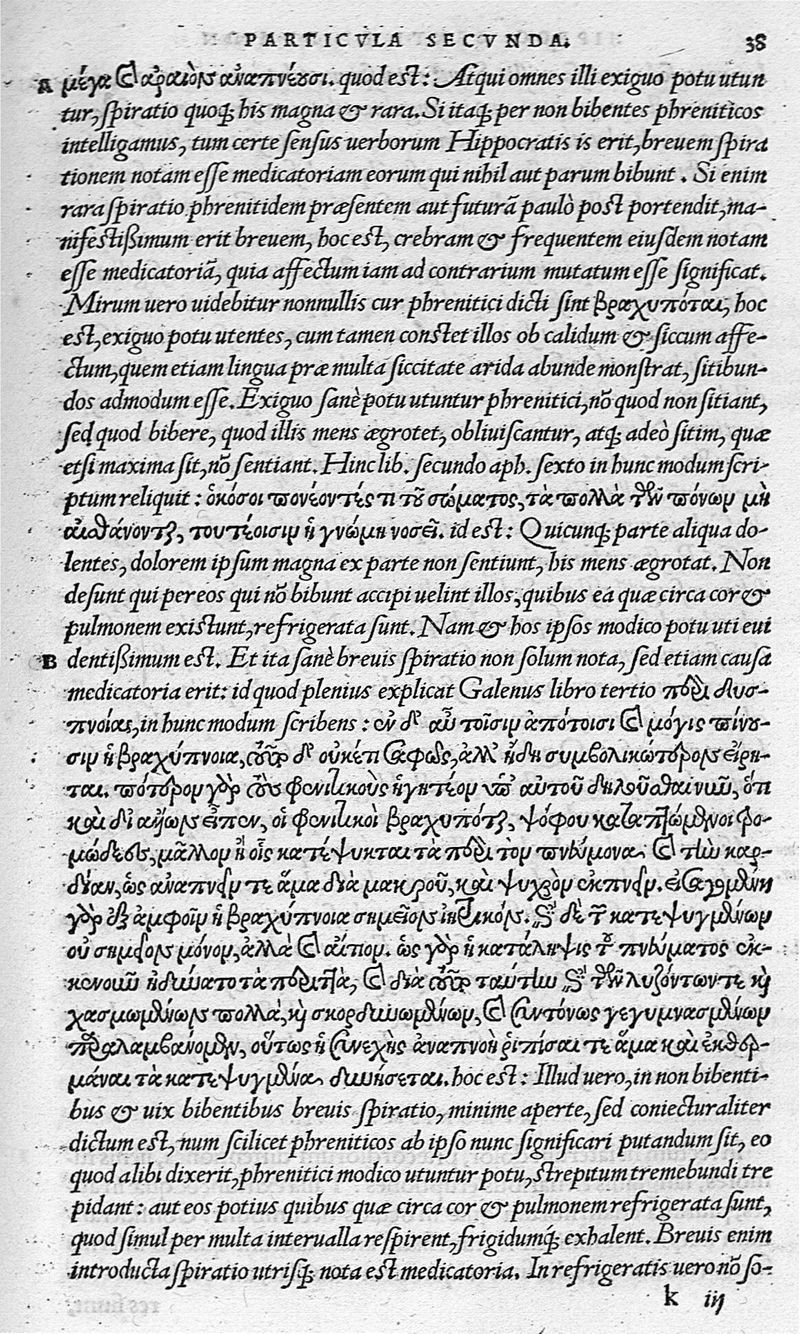 PARTICVLA SECVNDA. 38
A μέγα καὶ ἀραιὸν ἀναπνέουσι. quod est: Atqui omnes illi exiguo potu utun
tur, spiratio quoq; his magna & rara. Si itaq; per non bibentes phreniticos
intelligamus, tum certe sensus uerborum Hippocratis is erit, breuem spira
tionem notam esse medicatoriam eorum qui nihil aut parum bibunt. Si enim
rara spiratio phrenitidem præsentem aut futurã paulò post portendit, ma-
nifestißimum erit breuem, hoc est, crebram & frequentem eiusdem notam
esse medicatoriã, quia affectum iam ad contrarium mutatum esse significat.
Mirum uero uidebitur nonnullis cur phrenitici dicti sint βραχυπόται, hoc
est, exiguo potu utentes, cum tamen constet illos ob calidum & siccum affe-
ctum, quem etiam lingua præ multa siccitate arida abunde monstrat, sitibun-
dos admodum esse. Exiguo sanè potu utuntur phrenitici, nõ quod non sitiant,
sed quod bibere, quod illis mens ægrotet, obliuiscantur, atq; adeò sitim, quæ
etsi maxima sit, nõ sentiant. Hinc lib. secundo aph. sexto in hunc modum scri-
ptum reliquit: ὁκόσοι πονέοντές τι τοῦ σώματος, τὰ πολλὰ τῶν πόνων μὴ
αἰσθάνονται, τουτέοισιν ἡ γνώμη νοσεῖ. id est: Quicunq; parte aliqua do-
lentes, dolorem ipsum magna ex parte non sentiunt, his mens ægrotat. Non
desunt qui per eos qui nõ bibunt accipi uelint illos, quibus ea quæ circa cor &
pulmonem existunt, refrigerata sunt. Nam & hos ipsos modico potu uti eui
B dentißimum est. Et ita sanè breuis spiratio non solum nota, sed etiam causa
medicatoria erit: id quod plenius explicat Galenus libro tertio περὶ δυσ-
πνοίας, in hunc modum scribens: ἐν δὲ αὖ τοῖσιν ἀπότοισι καὶ μόγις πίνου-
σιν ἡ βραχύπνοια, οὖν δὲ οὐκέτι σαφῶς, ἀλλ' ἤδη συμβολικώτερον εἴρη-
ται. πότερον γὰρ τοὺς φρενιτικοὺς ἡγητέον ὑπ' αὐτοῦ δηλοῦσθαι νῦν, ὅτι
καὶ δι' ἄλλων εἶπεν, οἱ φρενιτικοὶ βραχυπόται, ψόφου καθαπτόμενοι τρο-
μώδεες, μᾶλλον ἢ οἷς κατέψυκται τὰ περὶ τὸν πνεύμονα καὶ τὴν καρ-
δίαν, ὡς ἀναπνεῖν τε ἅμα διὰ μακροῦ, καὶ ψυχρὸν ἐκπνεῖν.
γὰρ ἐπ' ἀμφοῖν ἡ βραχύπνοια σημεῖον ἰητικόν. ἐπὶ δὲ τῶν κατεψυγμένων
οὐ σημεῖον μόνον, ἀλλὰ καὶ αἴτιον. ὡς γὰρ ἡ κατάληψις τοῦ πνεύματος ἐκ-
κενοῦν ἠδύνατο τὰ περιττὰ, καὶ διὰ τοῦτο ταύτην ἐπὶ τῶν λυζόντων τε καὶ
χασμωμένων πολλὰ, καὶ σκορδινωμένων, καὶ συντόνως γεγυμνασμένων
παραλαμβάνομεν, οὕτως ἡ συνεχὴς ἀναπνοὴ ῥιπίσαι τε ἅμα καὶ ἐκθερ-
μάναι τὰ κατεψυγμένα δυνήσεται. hoc est: Illud uero, in non bibenti-
bus & uix bibentibus breuis spiratio, minime aperte, sed coniecturaliter
dictum est, num scilicet phreniticos ab ipso nunc significari putandum sit, eo
quod alibi dixerit, phrenitici modico utuntur potu, strepitum tremebundi tre
pidant: aut eos potius quibus quæ circa cor & pulmonem refrigerata sunt,
quod simul per multa interualla respirent, frigidumq; exhalent. Breuis enim
introducta spiratio utrisq; nota est medicatoria. In refrigeratis uero nõ so-
k iij